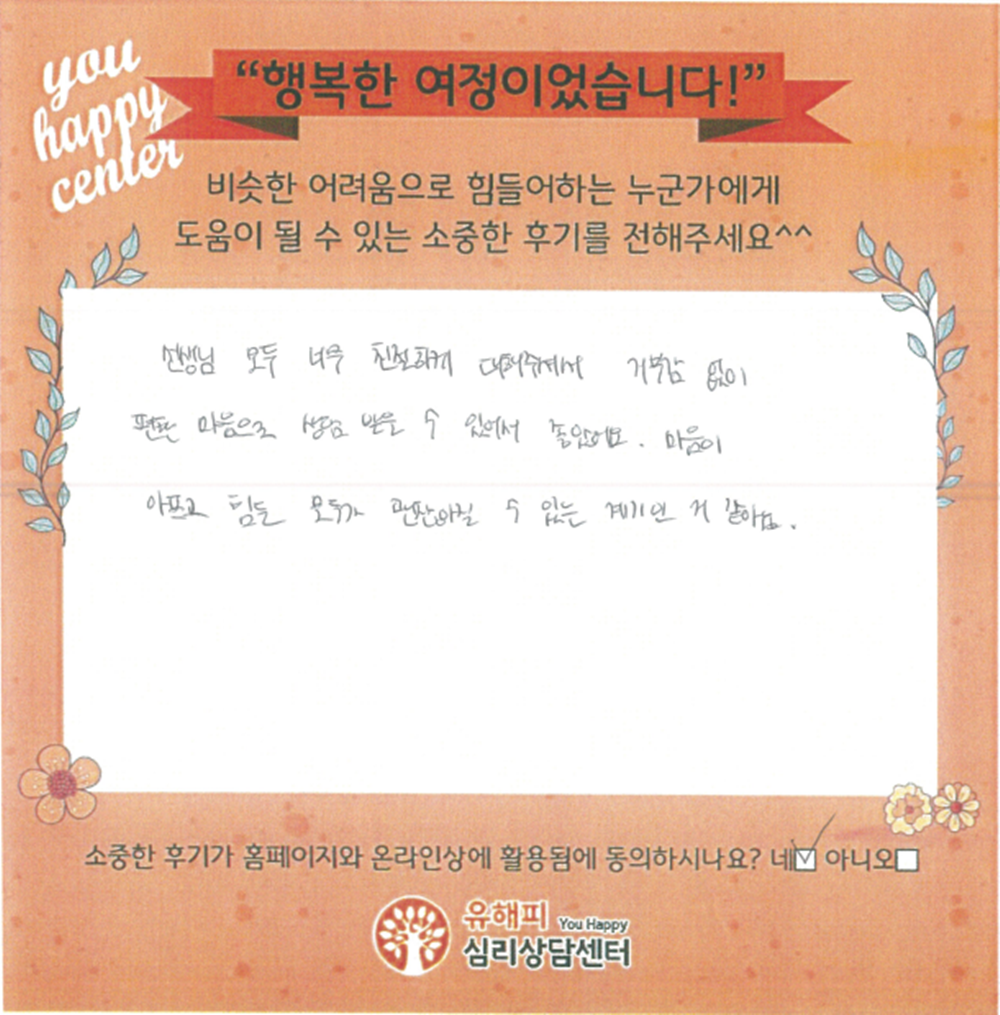 you
happy
center
“행복한 여정이었습니다!”
비슷한 어려움으로 힘들어하는 누군가에게
도움이 될 수 있는 소중한 후기를 전해주세요^^
선생님 모두 너무 친절하게 대해주셔서 거부감 없이
편한 마음으로 상담 받을 수 있어서 좋았어요. 마음이
아프고 힘든 모두가 괜찮아질 수 있는 계기인 거 같아요.
소중한 후기가 홈페이지와 온라인상에 활용됨에 동의하시나요? 네☑ 아니오☐
유해피 You Happy
심리상담센터